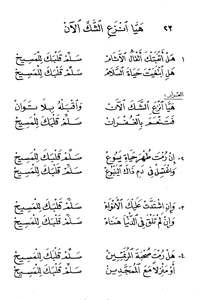 ٢٣ هَيَّا انْزَعِ الشَّكَّ الآنَ
١ هَلْ أَتْعَبَتْكَ أَثْقَالُ الآثَامِ سَلِّمْ قَلْبَكَ لِلْمَسِيحِ
هَلِ ابْتَغَيْتَ حَيَاةَ السَّلَامِ سَلِّمْ قَلْبَكَ لِلْمَسِيحِ
القرار:
هَيَّا انْزَعِ الشَّكَّ الآنَ وَاقْبَلْهُ بِلَا تَوَانْ
فَتَنْعَمَ بِالْغُفْرَانِ سَلِّمْ قَلْبَكَ لِلْمَسِيحِ
٢ إِنْ رُمْتَ طُهْرَ حَيَاةِ يَسُوعَ سَلِّمْ قَلْبَكَ لِلْمَسِيحِ
وَاغْتَسِلْ فِي دَمِ ذَاكَ الْيَنْبُوعْ سَلِّمْ قَلْبَكَ لِلْمَسِيحِ
٣ وَإِنِ اشْتَدَّتْ عَلَيْكَ الأَنْوَاءُ سَلِّمْ قَلْبَكَ لِلْمَسِيحِ
وَإِنْ لَمْ تَلْقَ فِي الدُّنْيَا هَنَاءْ سَلِّمْ قَلْبَكَ لِلْمَسِيحِ
٤ هَلْ رُمْتَ صُحْبَةَ سَلِّمْ قَلْبَكَ لِلْمَسِيحِ
أَوْ مَنْزِلاً مَعَ الْمُمَجَّدِينْ سَلِّمْ قَلْبَكَ لِلْمَسِيحِ